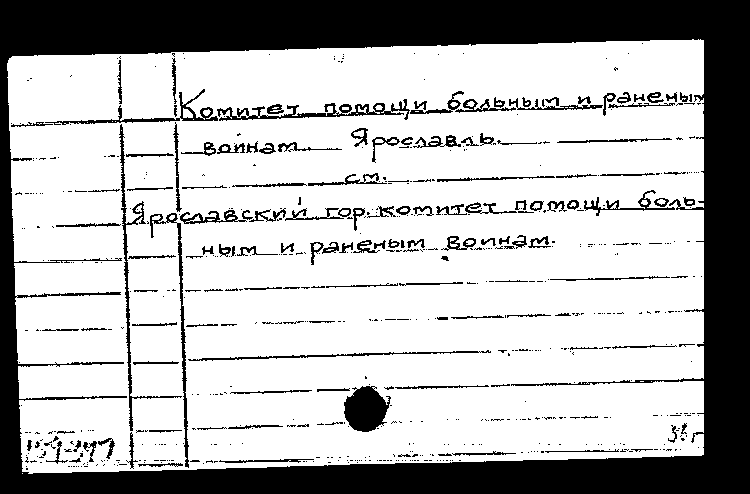 Комитет помощи больным и раненым
воинам. Ярославль.
см.
Ярославский гор. комитет помощи боль-
ным и раненым воинам.